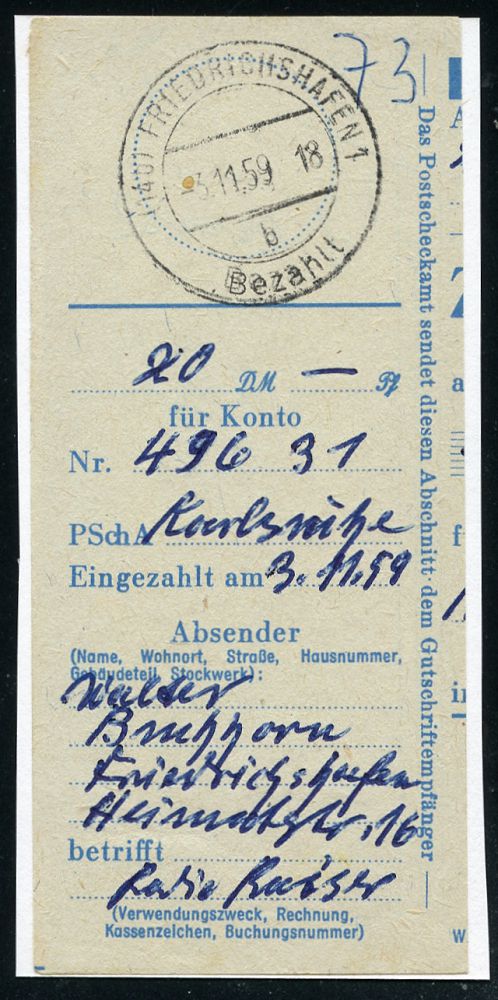 73
(14b) FRIEDRICHSHAFEN 1
-3.11.59 18
b
Bezahlt
20 DM — Pf
für Konto
Nr. 496 31
PSchA Karlsruhe
Eingezahlt am 3.11.59
Absender
(Name, Wohnort, Straße, Hausnummer,
Gebäudeteil, Stockwerk):
Walter
Friedrichshafen
Heimatstr. 16
betrifft
Radio Kaiser
(Verwendungszweck, Rechnung,
Kassenzeichen, Buchungsnummer)
Das Postscheckamt sendet diesen Abschnitt dem Gutschriftempfänger